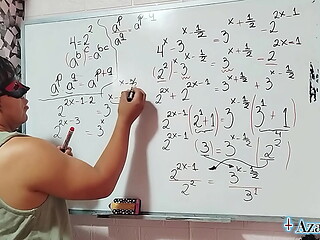 a^p / a^q = a^(p-q)
4 = 2^2
a^(b^c) = a^(b^c)
a^p a^q = a^(p+q)
2^(2x-1-2) = 3^(x-
2^(2x-3) = 3
4^x - 3^(x-1/2) = 3^(x+1/2) - 2^(2x-1)
(2^2)^x - 3^(x-1/2) = 3^(x+1/2) - 2^(2x-1)
2^(2x) + 2^(2x-1) = 3^(x+1/2) + 3^(x-1/2)
2^(2x-1) (2+1) = 3^(x-1/2) (3+1)
2^(2x-1) (3) = 3^(x-1/2) (2^2) 4
2^(2x-1) / 2^2 = 3^(x-1/2) / 3^1
+ Aza